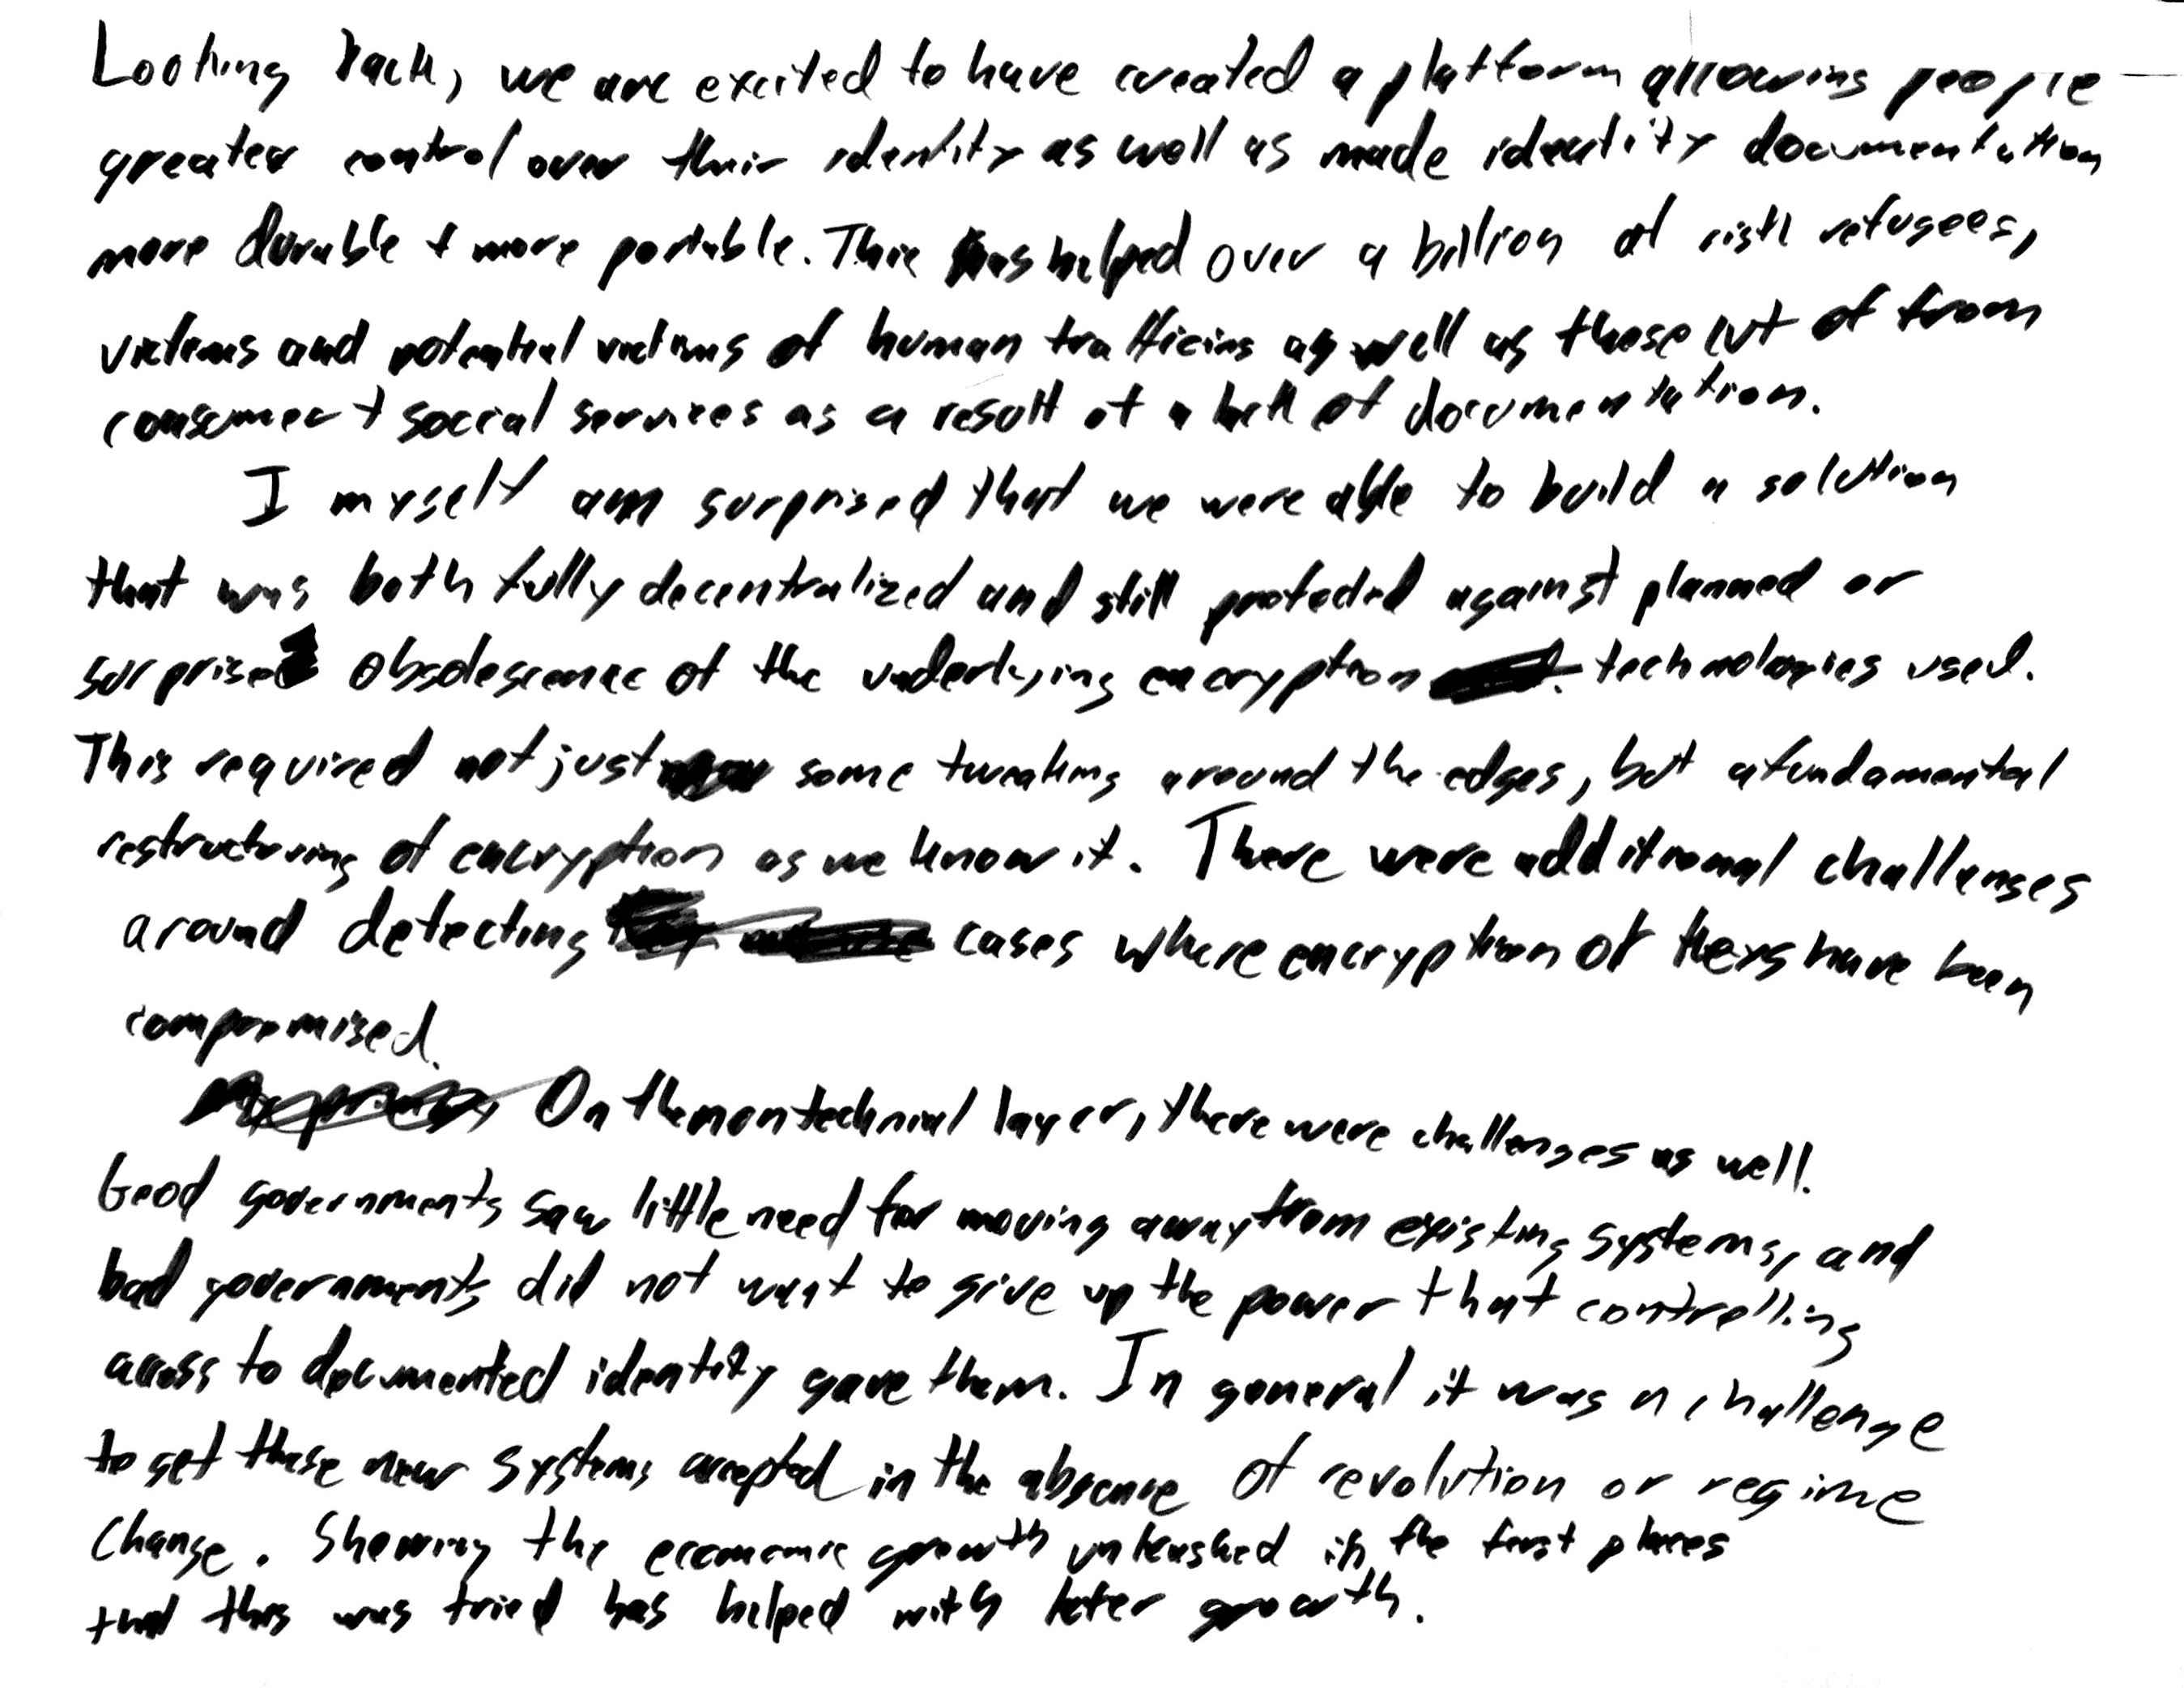 Looking back, we are excited to have created a platform allowing people
greater control over their identity as well as made identity documentation
more durable + more portable. This has helped over a billion at risk refugees,
victims and potential victims of human trafficing as well as those cut of from
consumer + social services as a result of a lack of documentation.
I myself am surprised that we were able to build a solution
that was both fully decentralized and still protected against planned or
surprise obsolescence of the underlying encryption technologies used.
This required not just some tweaking around the edges, but a fundamental
restructuring of encryption as we know it. There were additional challenges
around detecting cases where encryption of keys have been
compromised.
On the nontechnical layer, there were challenges as well.
Good governments saw little need for moving away from existing systems, and
bad governments did not want to give up the power that controlling
access to documented identity gave them. In general it was a challenge
to get these new systems accepted in the absence of revolution or regime
change. Showing the economic growth unleashed in the first places
that this was tried has helped with later growth.